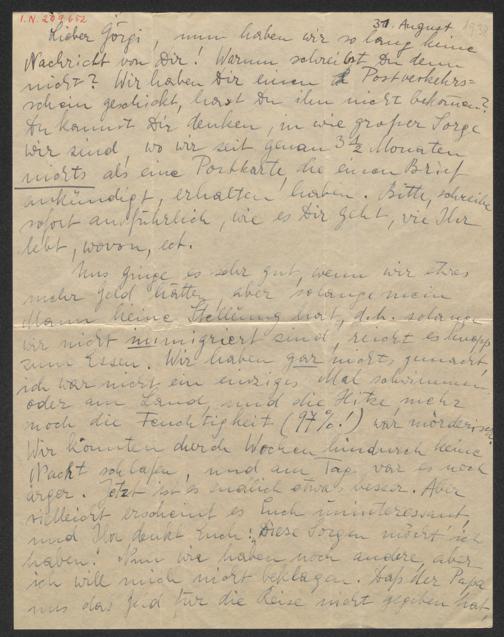 I.N. 209.652
31. August 1938
Lieber Görgi, nun haben wir so lang keine
Nachricht von Dir! Warum schreibst Du denn
nicht? Wir haben Dir einen Postverkehrs=
schein geschickt, hast Du ihn nicht bekommen?
Du kannst Dir denken, in wie großer Sorge
wir sind, wo wir seit genau 3 1/2 Monaten
nichts als eine Postkarte, die einen Brief
ankündigt, erhalten haben. Bitte, schreibe
sofort ausführlich, wie es Dir geht, wie Ihr
lebt, wovon, ect.
Uns ginge es sehr gut, wenn wir etwas
mehr Geld hätten, aber solange mein
Mann keine Stellung hat, d.h. solange
wir nicht immigriert sind, reicht es knapp
zum Essen. Wir haben gar nichts gemacht,
ich war nicht ein einziges Mal schwimmen
oder am Land, und die Hitze mehr
noch die Feuchtigkeit (97%!) war mörderisch.
Wir konnten durch Wochen hindurch keine
Nacht schlafen, und am Tag war es noch
ärger. Jetzt ist es endlich etwas besser. Aber
vielleicht erscheint es Euch uninteressant,
und Ihr denkt Euch: Diese Sorgen möcht' ich
haben! Nun wir haben noch andere, aber
ich will mich nicht beklagen. Daß der Papa
uns das Geld für die Reise nicht gegeben hat